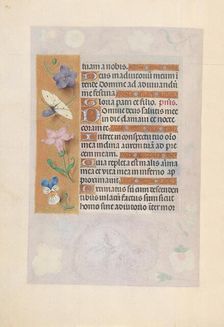 tuam a nobis.
Deus in adiutorium meum in
tende Domine ad adiuuandum
me festina
Gloria patri et filio. psus.
Domine deus salutis mee
in die clamaui et nocte
coram te
Intret in conspectu tuo o
mea inclina aurem tuam ad
meam
Quia repleta est malis anima
mea et vita mea in inferno ap
propinquauit
Estimatus sum cum descendenti
tibus in lacum factus sum sicut
homo sine adiutorio inter mor